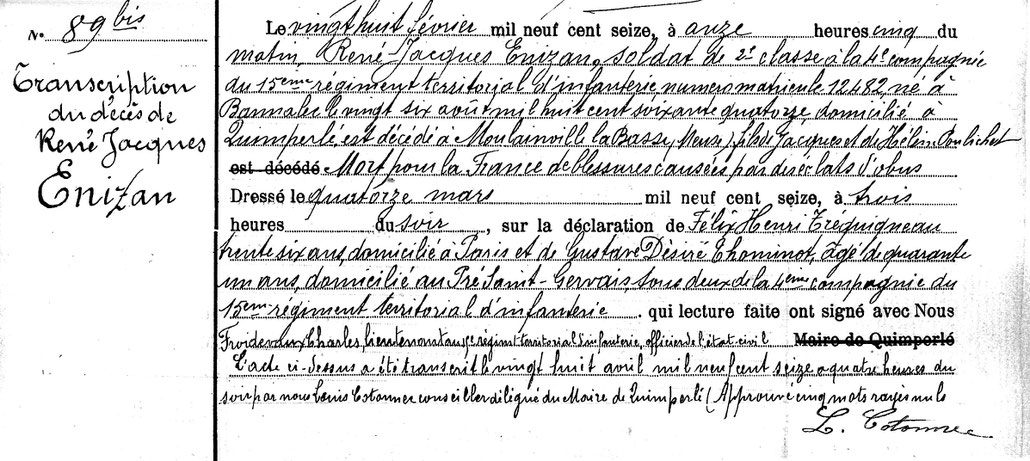 N° 89 bis
Transcription
du décès de
René Jacques
Enizan
Le vingt huit février mil neuf cent seize, à onze heures cinq du
matin, René Jacques Enizan, soldat de 2e classe à la 4e compagnie
du 15ème régiment territorial d'infanterie numero matricule 12482, né à
Bannalec le vingt six août mil huit cent soixante quatorze domicilié à
Quimperlé est décédé à Moulainville la Basse (Meuse) fils de Jacques et de Hélène
est décédé Mort pour la France de blessures causées par des éclats d'obus
Dressé le quatorze mars mil neuf cent seize, à trois
heures du soir, sur la déclaration de Félix Henri Tréguigneau
trente six ans, domicilié à Paris et de Gustave Désiré Thominot, âgé de quarante
un ans, domicilié au Pré Saint-Gervais, tous deux de la 4ème compagnie du
15ème régiment territorial d'infanterie. qui lecture faite ont signé avec Nous
Froidevaux Charles, lieutenant au 15e régiment territorial d'infanterie, officier de l'état civil Maire de Quimperlé
L'acte ci-dessus a été transcrit le vingt huit avril mil neuf cent seize a quatre heures du
soir par nous Louis Cotonnec conseiller délégué du Maire de Quimperlé (Approuvé cinq mots rayés nuls
L. Cotonnec